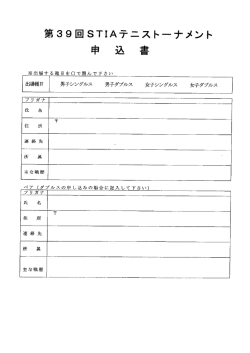 第39回STIAテニストーナメント
申込書
※出場する種目を○で囲んで下さい
出場種目 男子シングルス 男子ダブルス 女子シングルス 女子ダブルス
フリガナ
氏名
住所 〒
連絡先
所属
主な戦歴
ペア(ダブルスの申し込みの場合に記入して下さい)
フリガナ
氏名
住所 〒
連絡先
所属
主な戦歴